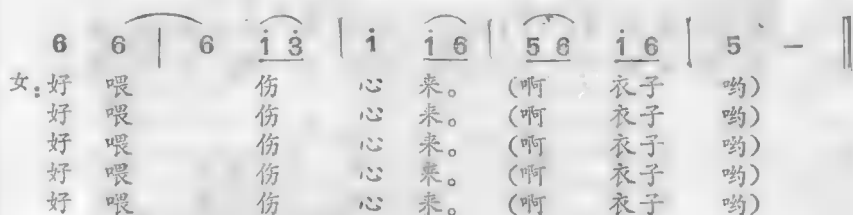 6 6 | 6 i̇ 3̇ | i̇ i̇ 6 | 5 6 i̇ 6 | 5 － ‖
女：好 喂 伤 心 来。 （啊 衣子 哟）
好 喂 伤 心 来。 （啊 衣子 哟）
好 喂 伤 心 来。 （啊 衣子 哟）
好 喂 伤 心 来。 （啊 衣子 哟）
好 喂 伤 心 来。 （啊 衣子 哟）